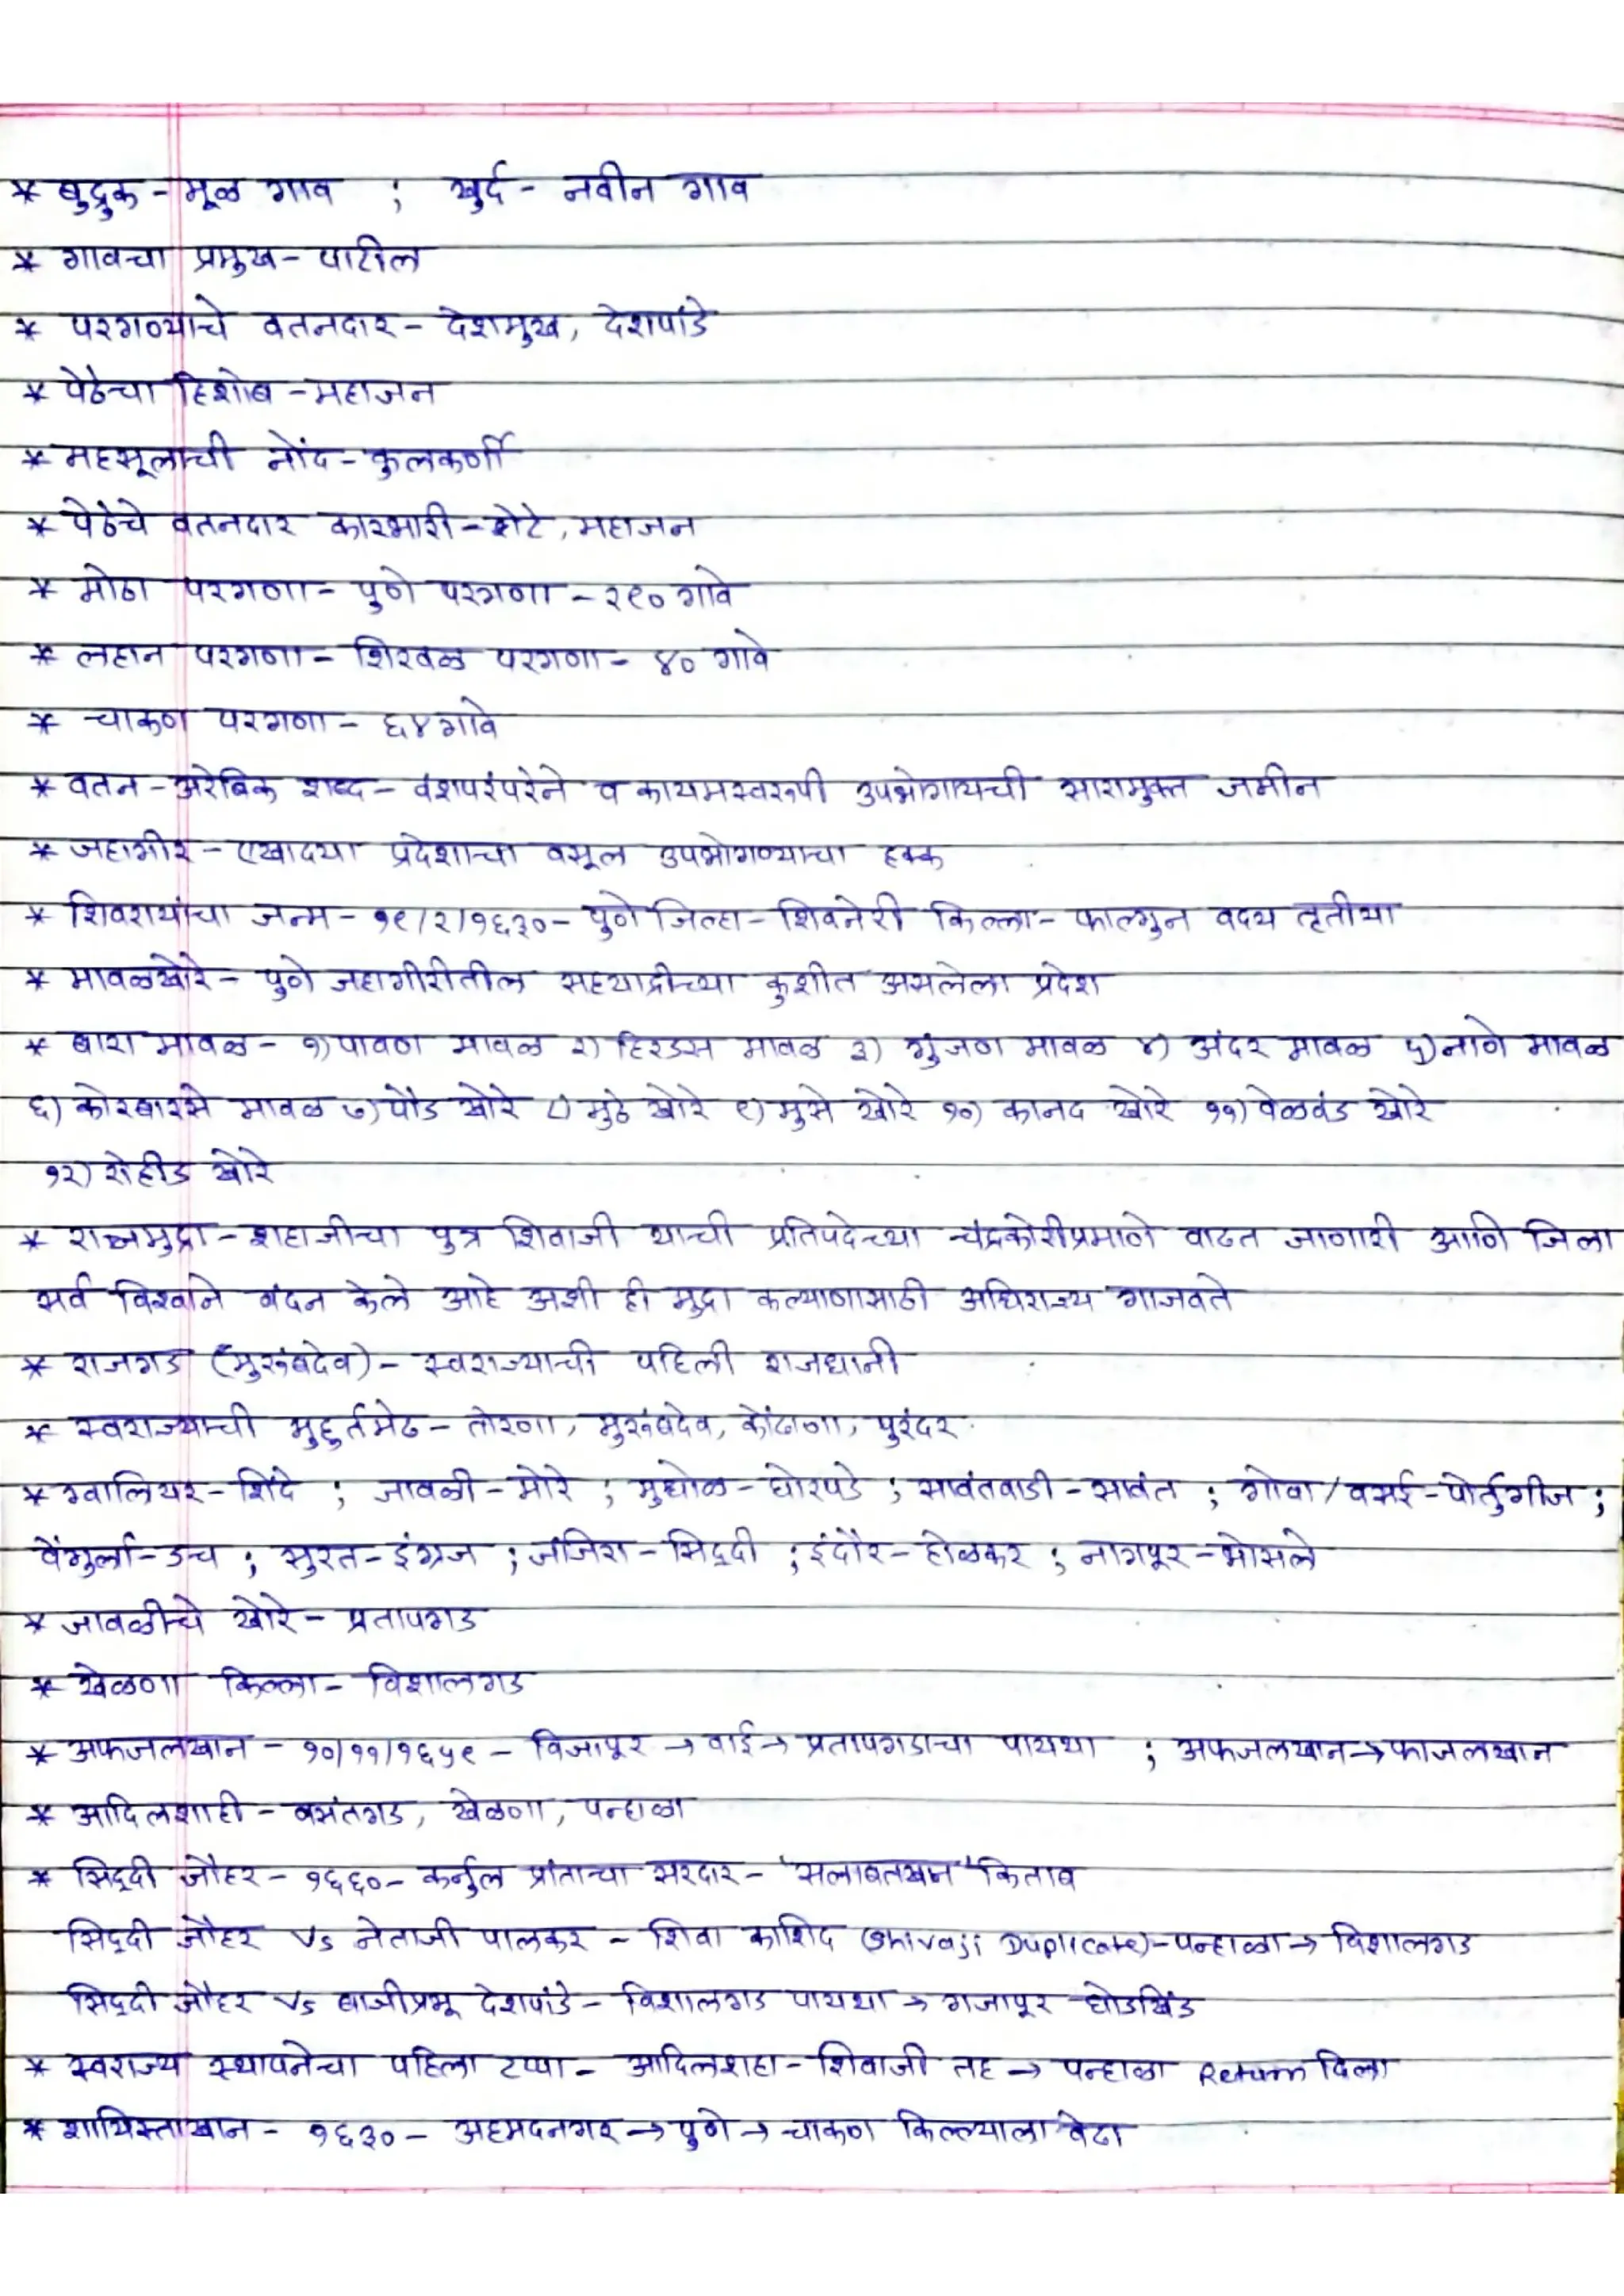 * बुद्रुक - मूळ गाव ; खुर्द - नवीन गाव
* गावचा प्रमुख - पाटील
* परगण्याचे वतनदार - देशमुख, देशपांडे
* पेठेचा हिशोब - महाजन
* महसूलाची नोंद - कुलकर्णी
* पेठेचे वतनदार कारभारी - शेटे, महाजन
* मोठा परगणा - पुणे परगणा - २९० गावे
* लहान परगणा - शिरवळ परगणा - ४० गावे
* चाकण परगणा - ६४ गावे
* वतन - अरेबिक शब्द - वंशपरंपरेने व कायमस्वरूपी उपभोगायची सारामुक्त जमीन
* जहागीर - एखादया प्रदेशाचा वसूल उपभोगण्याचा हक्क
* शिवरायांचा जन्म - १९/२/१६३० - पुणे जिल्हा - शिवनेरी किल्ला - फाल्गुन वदय तृतीया
* मावळखोरे - पुणे जहागीरीतील सह्याद्रीच्या कुशीत असलेला प्रदेश
* बारा मावळ - १) पावण मावळ २) हिरडस मावळ ३) गुंजण मावळ ४) अंदर मावळ ५) नाणे मावळ
६) कोरबारसे मावळ ७) पौड खोरे ८) मुठे खोरे ९) मुसे खोरे १०) कानद खोरे ११) वेळवंड खोरे
१२) रोहीड खोरे
* राजमुद्रा - शहाजीचा पुत्र शिवाजी याची प्रतिपदेच्या चंद्रकोरीप्रमाणे वाढत जाणारी आणि जिला
सर्व विश्वाने वंदन केले आहे अशी ही मुद्रा कल्याणासाठी अधिराज्य गाजवते
* राजगड (मुरुंबदेव) - स्वराज्याची पहिली राजधानी
* स्वराज्याची मुहूर्तमेढ - तोरणा, मुरुंबदेव, कोंढाणा, पुरंदर
* ग्वालियर - शिंदे ; जावळी - मोरे ; मुधोळ - घोरपडे ; सावंतवाडी - सावंत ; गोवा/वसई - पोर्तुगीज ;
वेंगुर्ला - डच ; सुरत - इंग्रज ; जंजिरा - सिद्दी ; इंदौर - होळकर ; नागपूर - भोसले
* जावळीचे खोरे - प्रतापगड
* खेळणा किल्ला - विशालगड
* अफजलखान - १०/११/१६५९ - विजापूर → वाई → प्रतापगडाचा पायथा ; अफजलखान → फाजलखान
* आदिलशाही - वसंतगड, खेळणा, पन्हाळा
* सिद्दी जौहर - १६६० - कर्नुल प्रांताचा सरदार - "सलाबतखान" किताब
सिद्दी जौहर Vs नेताजी पालकर - शिवा काशिद (Shivaji Duplicate) - पन्हाळा → विशालगड
सिद्दी जौहर Vs बाजीप्रभू देशपांडे - विशालगड पायथा → गजापूर घोडखिंड
* स्वराज्य स्थापनेचा पहिला टप्पा - आदिलशहा - शिवाजी तह → पन्हाळा Return दिला
* शायिस्ताखान - १६३० - अहमदनगर → पुणे → चाकण किल्ल्याला वेढा